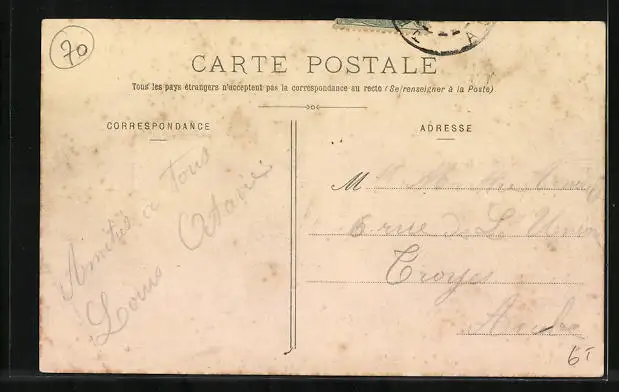 70
CARTE POSTALE
Tous les pays étrangers n'acceptent pas la correspondance au recto (Se renseigner à la Poste)
CORRESPONDANCE
Amitiés à Tous
Louis Octavie
ADRESSE
M
6 rue de L'Union
Troyes
Aube
6